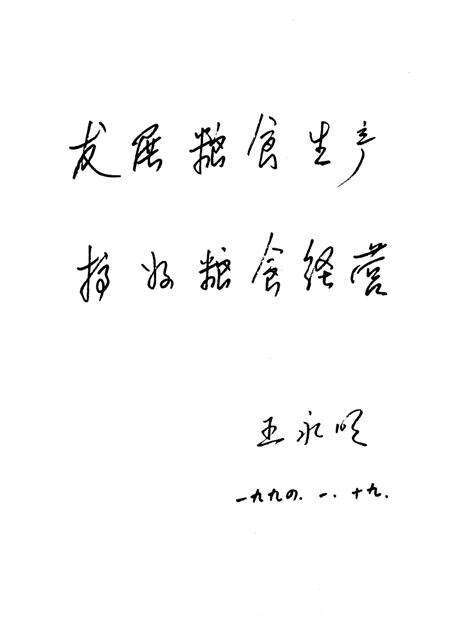 发展粮食生产
搞好粮食经营
王永明
一九九四.一.十九.